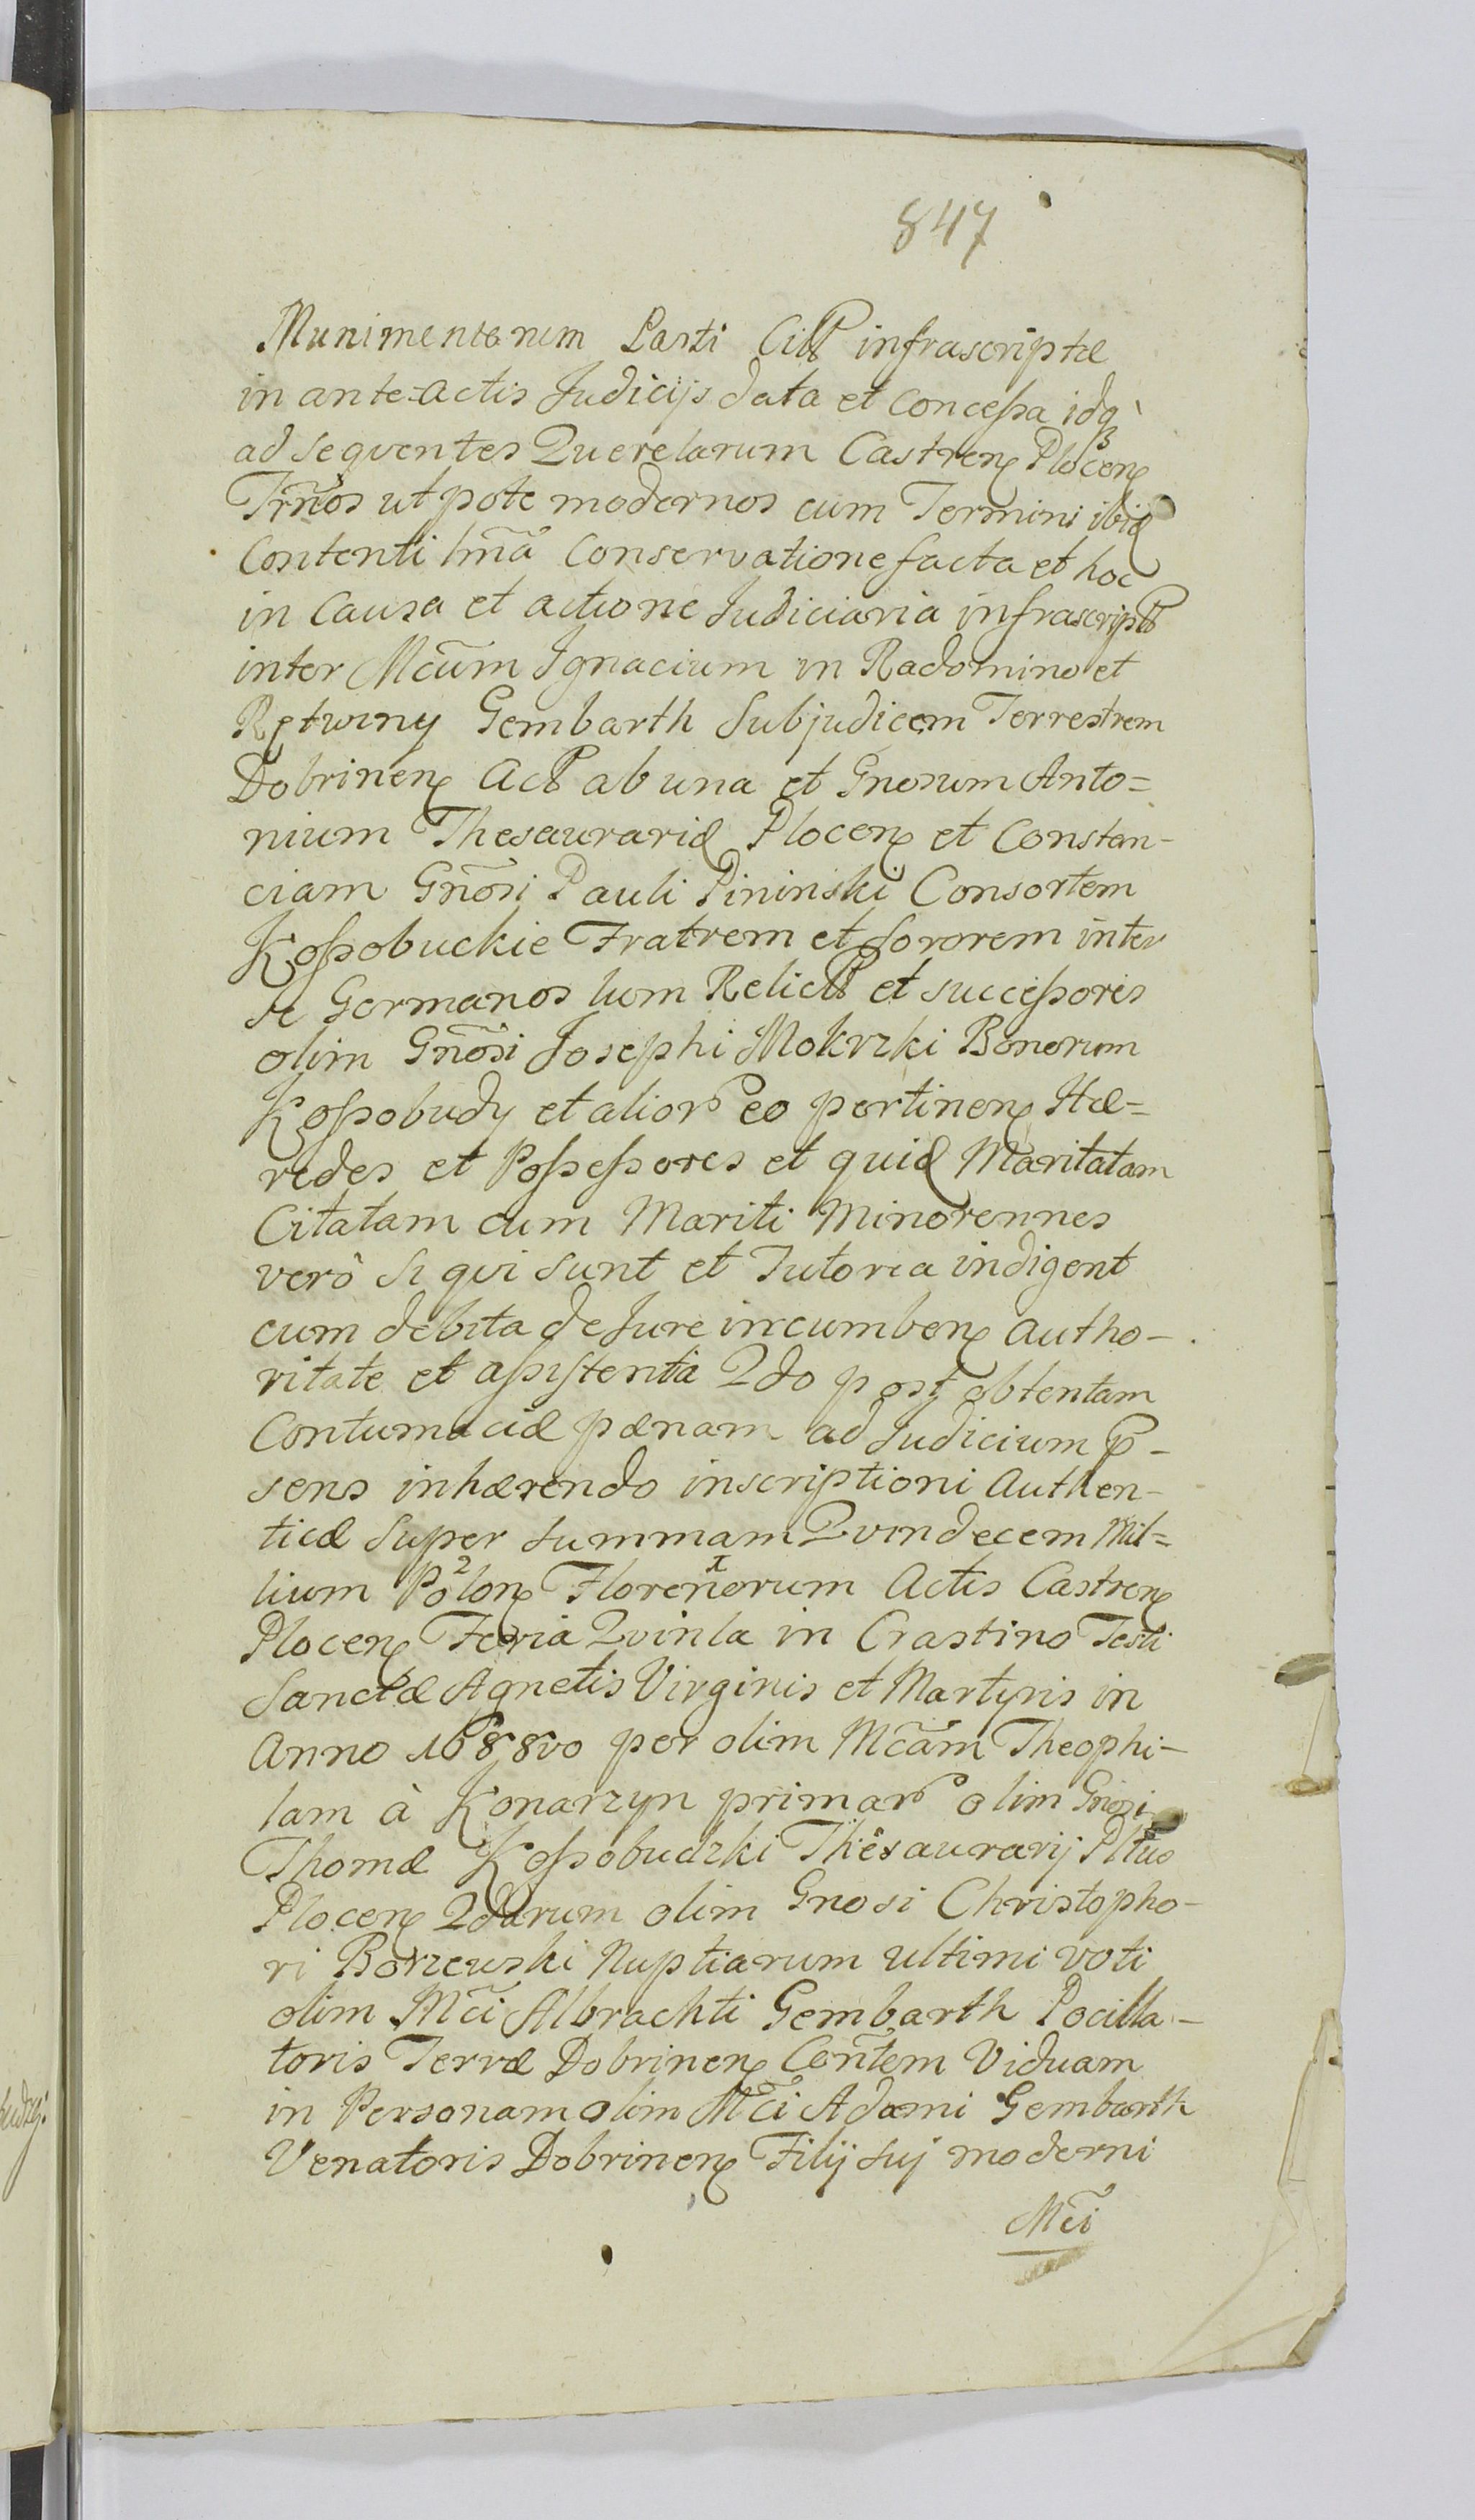 847
Munimentorum Parti Citt infrascriptæ
in ante-actis Judicijs data et concessa idq
ad sequentes Querelarum Castren Plocen
Trños ut pote modernos cum Termini ibid
Contenti lmã Conservatione facta et hoc
in Causa et actione Judiciaria infrascript
inter Mcũm Ignacium in Radomino et
Rętwiny Gembarth Subjudicem Terrestrem
Dobrinen Act ab una et Gnosum Anto=
nium Thesaurarid Plocen et Constan-
ciam Gnõsi Pauli Pininski Consortem
Kossobuckie Fratrem et sororem inter
se Germanos tum Relict et successores
olim Gnõsi Josephi Mokrzki Bonorum
Kossobudy et alior eo pertinen Hæ=
redes et Possessores et quid Maritatam
Citatam cum Mariti Minorennes
verò si qui sunt et Tutoria indigent
cum debita de Jure incumben autho-
ritate et assistentia 2do post obtentam
Contumaciæ pænam ad Judicium p-
sens inhærendo inscriptioni Authen-
ticæ super summam Quindecem Mil=
lium Polon 2 Florenorum x Actis Castren
Plocen Feria Quinta in Crastino Festi
Sanctæ Agnetis Virginis et Martyris in
Anno 1688vo per olim Mcãm Theophi-
lam à Konarzyn primar olim Gnosi
Thomæ Kossobudzki Thesaurarij Pltũs
Plocen 2darum olim Gnosi Christopho-
ri Borzewski Nuptiarum ultimi voti
olim Mci Albrachti Gembarth Pocilla-
toris Terræ Dobrinen Cõntem Viduam
in Personam olim Mci Adami Gembarth
Venatoris Dobrinen Filij sui moderni
Mci